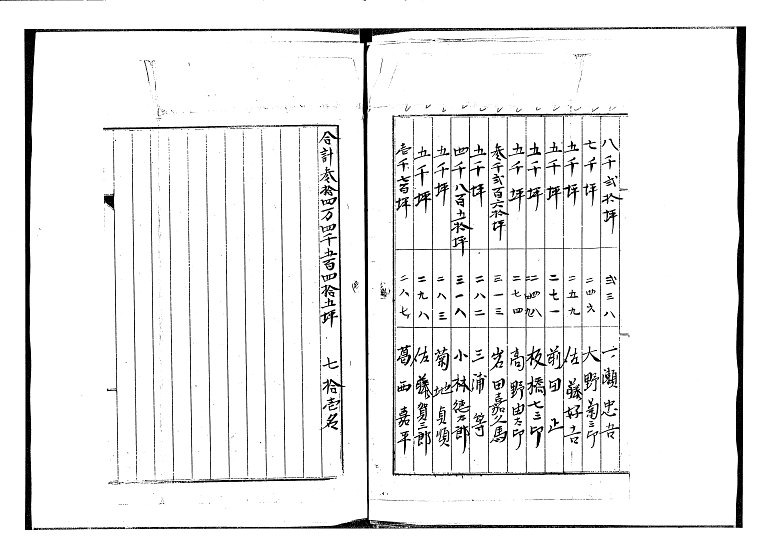 八千弐拾坪 弐三八 一瀬忠吾
七千坪 二四六 大野菊三郎
五千坪 二五九 佐藤好吉
五千坪 二七一 前田正
五千坪 板橋七三郎
五千坪 二七四 高野由太郎
参千弐百六拾坪 三一三 岩田嘉久馬
五千坪 二八二 三浦等
四千八百五拾坪 三一八 小林徳太郎
五千坪 二八三 菊地貞順
五千坪 二九八 佐藤賀三郎
壱千七百坪 二八七 葛西嘉平
合計参拾四万四千五百四拾五坪 七拾壱名